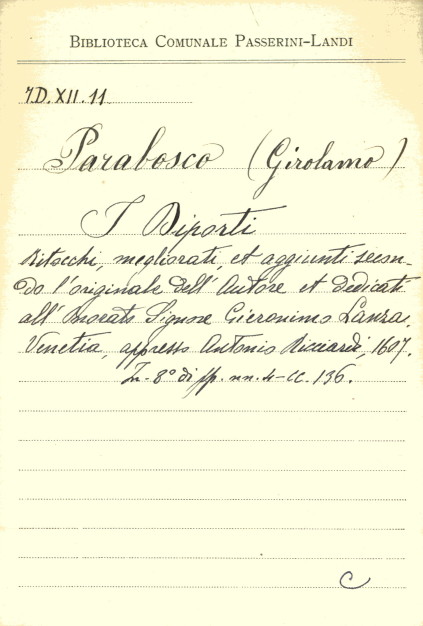 BIBLIOTECA COMUNALE PASSERINI-LANDI
7.D.XII.11
Parabosco (Girolamo)
I Diporti
Ritocchi, megliorati, et aggiunti secon-
do l'originale dell' Autore et dedicati
all' Signore Gieronimo Lanza.
Venetia, appresso Antonio Ricciardi, 1607.
In-8° di pp. nn. 4-cc. 136.
C